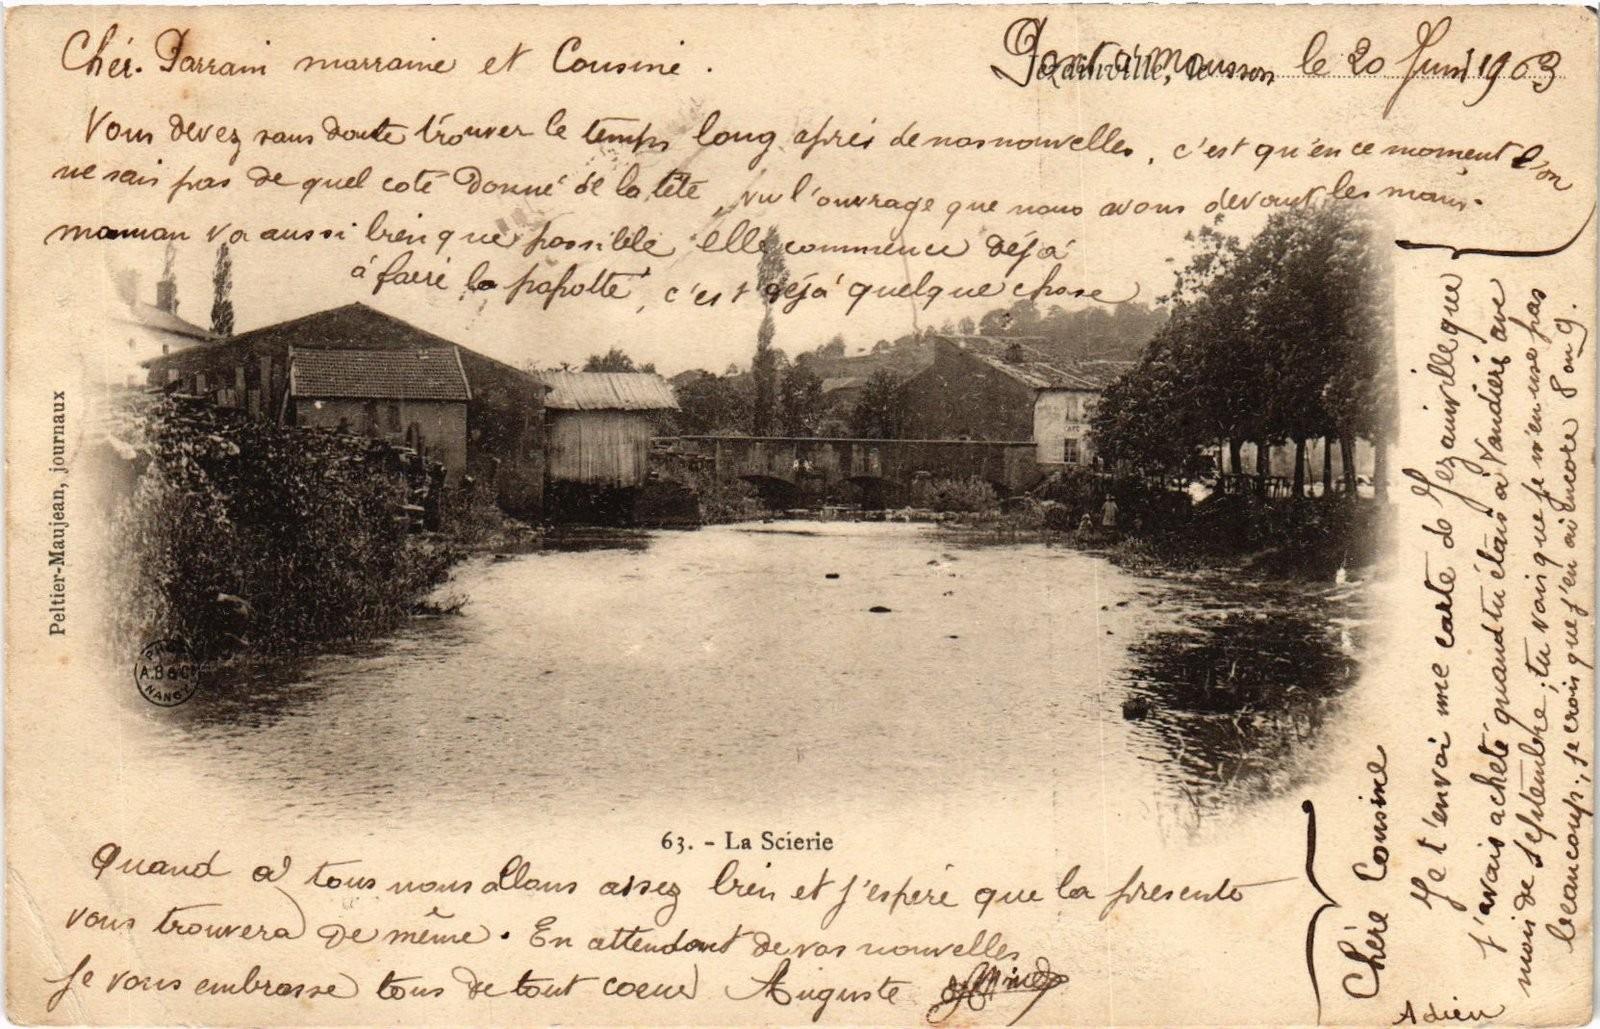 Chér. Parrain marraine et Cousine.
Pont à Mousson le 20 Juin 1903
Jezainville, le
Vous devez sans doute trouver le temps long après de nos nouvelles, c'est qu'en ce moment l'on
ne sais pas de quel coté donné de la tête, vu l'ouvrage que nous avons devant les mains.
maman va aussi bien que possible elle commence déjà
à faire la popotte, c'est déjà quelque chose
Peltier-Maujean, journaux
PHOT
A.B & Cie
NANCY
CAFÉ
63. - La Scierie
Quand à tous nous allons assez bien et j'espére que la presente
vous trouvera de même. En attendant de vos nouvelles
Je vous embrasse tous de tout coeur Auguste
Chère Cousine
Je t'envoi une carte de Jezainville que
j'avais acheté quand tu étais à Vandières au
mois de Septembre; tu vois que je n'en use pas
beaucoup; je crois que j'en ai encore 8 ou 9.
Adieu